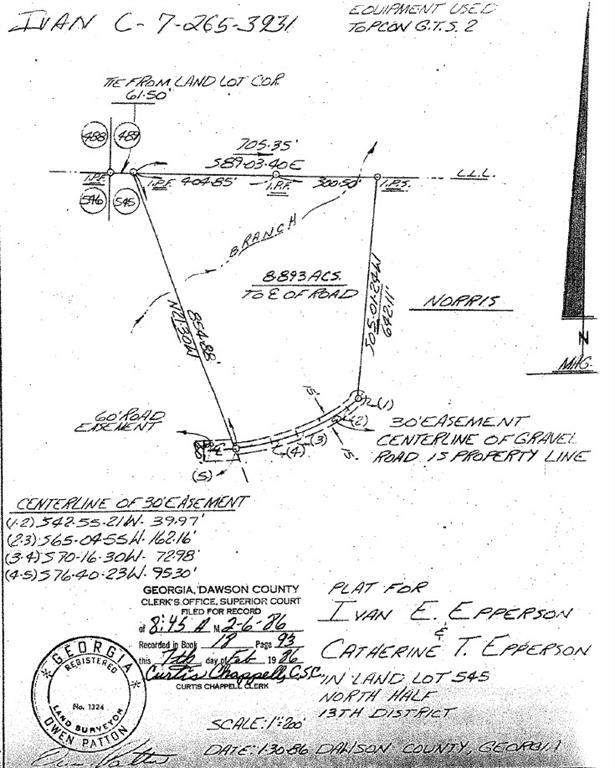 IVAN C-7-265-3931
EQUIPMENT USED
TOPCON G.T.S. 2
TIE FROM LAND LOT COR.
61.50'
488 489
546 545
I.P.F.
I.P.F.
404.85'
705.35'
S89-03-40E
I.P.F.
300.50'
I.P.S.
L.L.L.
BRANCH
8.893 ACS.
TO ℄ OF ROAD
S05-01-24W
642.11'
NORRIS
N
MAG.
854.88'
N21-30W
60' ROAD
EASEMENT
15'
15'
(1)
(2)
(3)
(4)
(5)
30' EASEMENT
CENTERLINE OF GRAVEL
ROAD IS PROPERTY LINE
CENTERLINE OF 30' EASEMENT
(1-2) S42-55-21W. 39.97'
(2-3) S65-04-55W. 162.16'
(3-4) S70-16-30W. 72.98'
(4-5) S76-40-23W. 95.30'
GEORGIA, DAWSON COUNTY
CLERK'S OFFICE, SUPERIOR COURT
FILED FOR RECORD
at 8:45 A M 2-6-86
Recorded in Book 18 Page 93
this 7th day of Feb 19 86
Curtis Chappell, C.S.C.
CURTIS CHAPPELL CLERK
GEORGIA
REGISTERED
No. 1324
LAND SURVEYOR
OWEN PATTON
Owen Patton
PLAT FOR
IVAN E. EPPERSON
&
CATHERINE T. EPPERSON
IN LAND LOT 545
NORTH HALF
13TH DISTRICT
SCALE: 1"=200'
DATE: 1-30-86 DAWSON COUNTY, GEORGIA